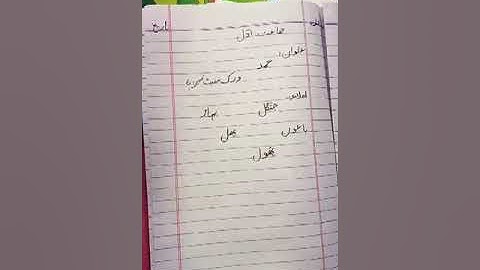 تاریخ
جماعت: اول
عنوان: حمد
ورک شیٹ نمبر ۱
املا: جنگل پہاڑ
باغوں پھل
پھول